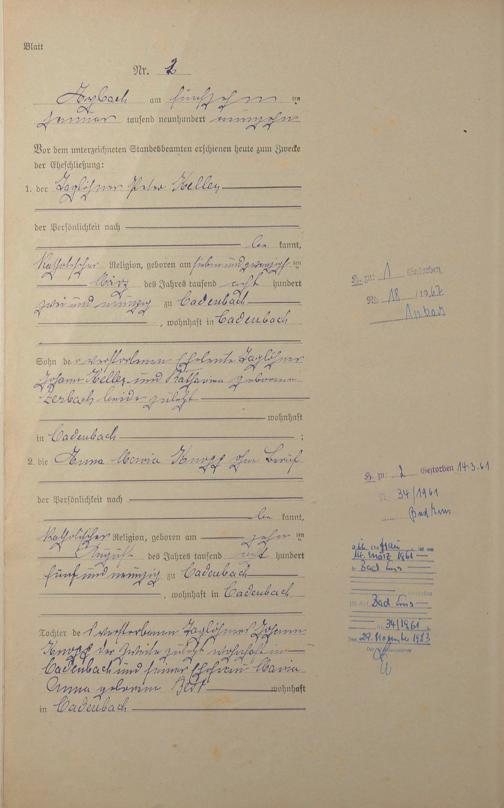 Blatt
Nr. 2
Arzbach am fünfzehn ten
Januar tausend neunhundert neunzehn
Vor dem unterzeichneten Standesbeamten erschienen heute zum Zwecke
der Eheschließung:
1. der Taglöhner Peter Keller
der Persönlichkeit nach
be kannt,
katholischer Religion, geboren am siebenundzwanzigsten
März des Jahres tausend acht hundert
zweiundneunzig zu Cadenbach
, wohnhaft in Cadenbach
Sohn der verstorbenen Eheleute Taglöhner
Johann Keller und Katharina geborene
beide zuletzt
wohnhaft
in Cadenbach ;
2. die Anna Maria Knopp ohne Beruf
der Persönlichkeit nach
be kannt,
katholischer Religion, geboren am zehn ten
August des Jahres tausend acht hundert
fünf und neunzig zu Cadenbach
, wohnhaft in Cadenbach
Tochter des verstorbenen Taglöhners Johann
Knopp der zuletzt wohnhaft in
Cadenbach und seiner Ehefrau Maria
Anna geborene wohnhaft
in Cadenbach
zu: 1 Gestorben
Nr. 18 /1967
zu: 2 Gestorben 14.3.61
34/1961
Bad Ems
14. März 1961
in Bad Ems
Bad Ems
Nr. 34/1961
Den 29. November 1983